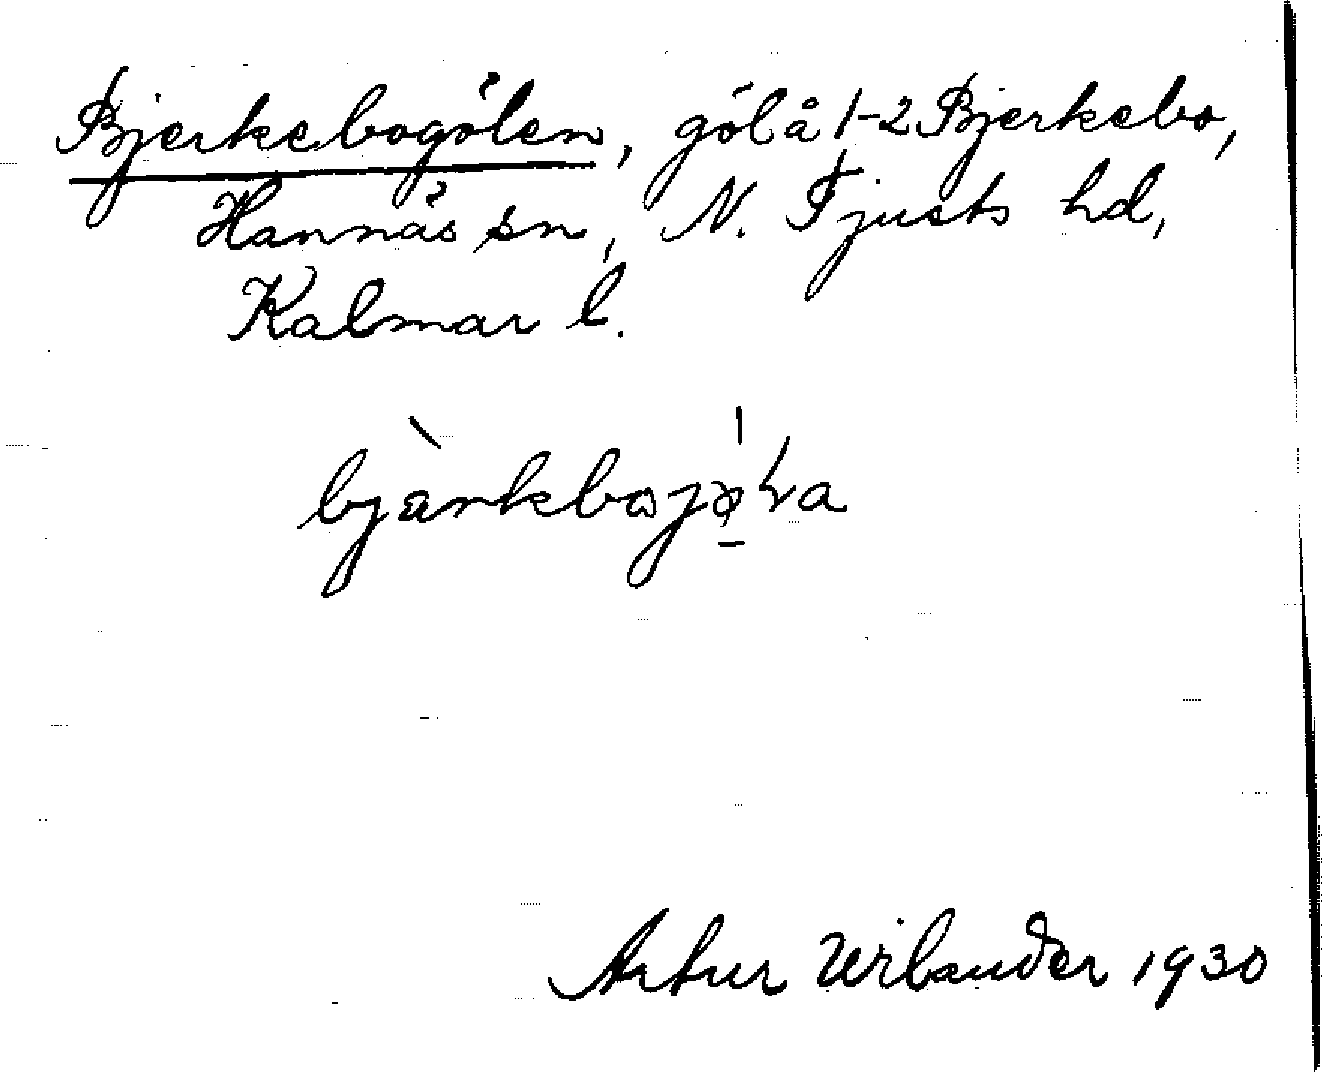 Bjerkebogölen, göl å 1-2 Bjerkebo,
Hannäs sn, N. Tjusts hd,
Kalmar l.
Artur Wilander 1930